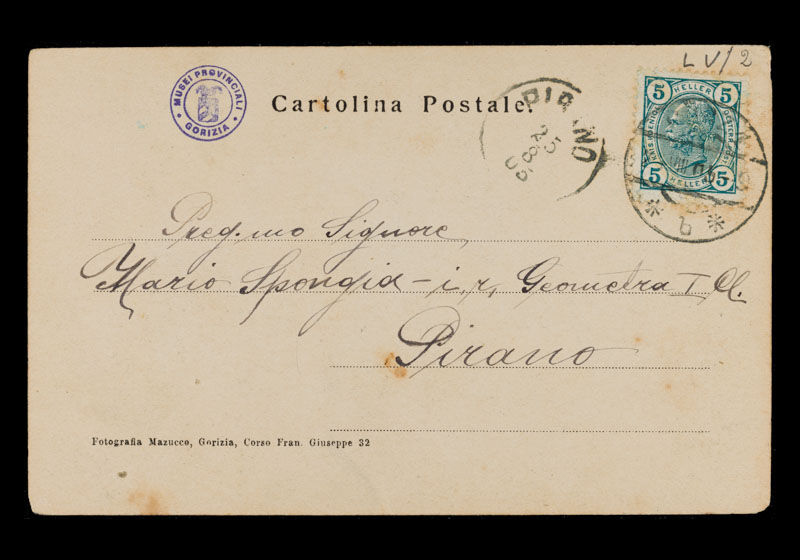 LV/2
MUSEI PROVINCIALI GORIZIA
Cartolina Postale.
PIRANO
25 8 05
5 HELLER 5
5 HELLER 5
b
Preg.mo Signore
Mario Spongia - i. r. Geometra I Cl.
Pirano
Fotografia Mazucco, Gorizia, Corso Fran. Giuseppe 32